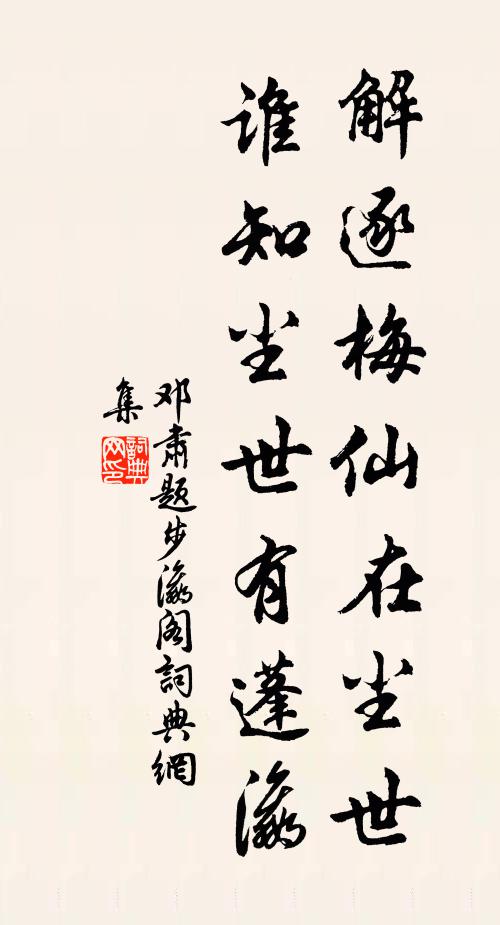 解逐梅仙在尘世
谁知尘世有蓬瀛
邓肃题步瀛阁詞典網
集
詞典網印